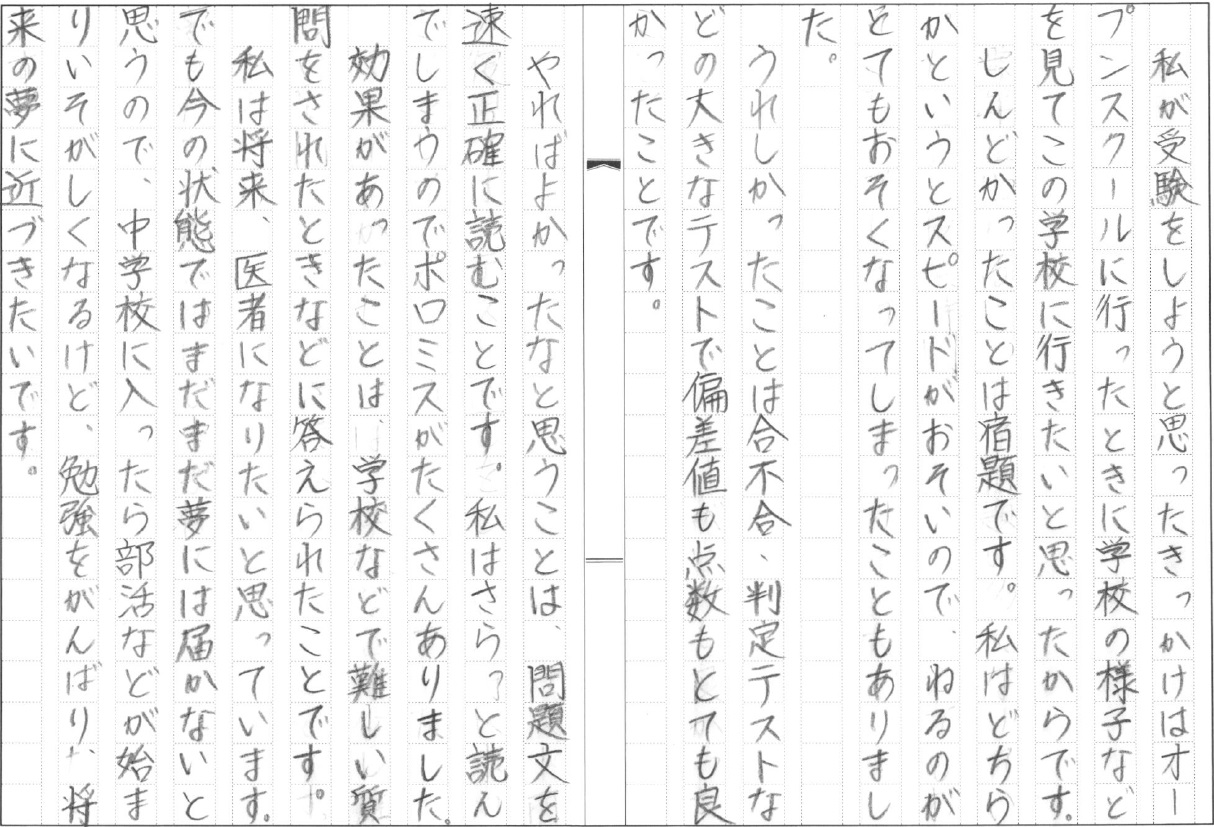 私が受験をしようと思ったきっかけはオー
プンスクールに行ったときに学校の様子など
を見てこの学校に行きたいと思ったからです。
しんどかったことは宿題です。私はどちら
かというとスピードがおそいので、ねるのが
とてもおそくなってしまったこともありまし
た。
うれしかったことは合不合、判定テストな
どの大きなテストで偏差値も点数もとても良
かったことです。
やればよかったなと思うことは、問題文を
速く正確に読むことです。私はさら?と読ん
でしまうのでポロミスがたくさんありました。
効果があったことは、学校などで難しい質
問をされたときなどに答えられたことです。
私は将来、医者になりたいと思っています。
でも今の状態ではまだまだ夢には届かないと
思うので、中学校に入ったら部活などが始ま
りいそがしくなるけど、勉強をがんばり、将
来の夢に近づきたいです。